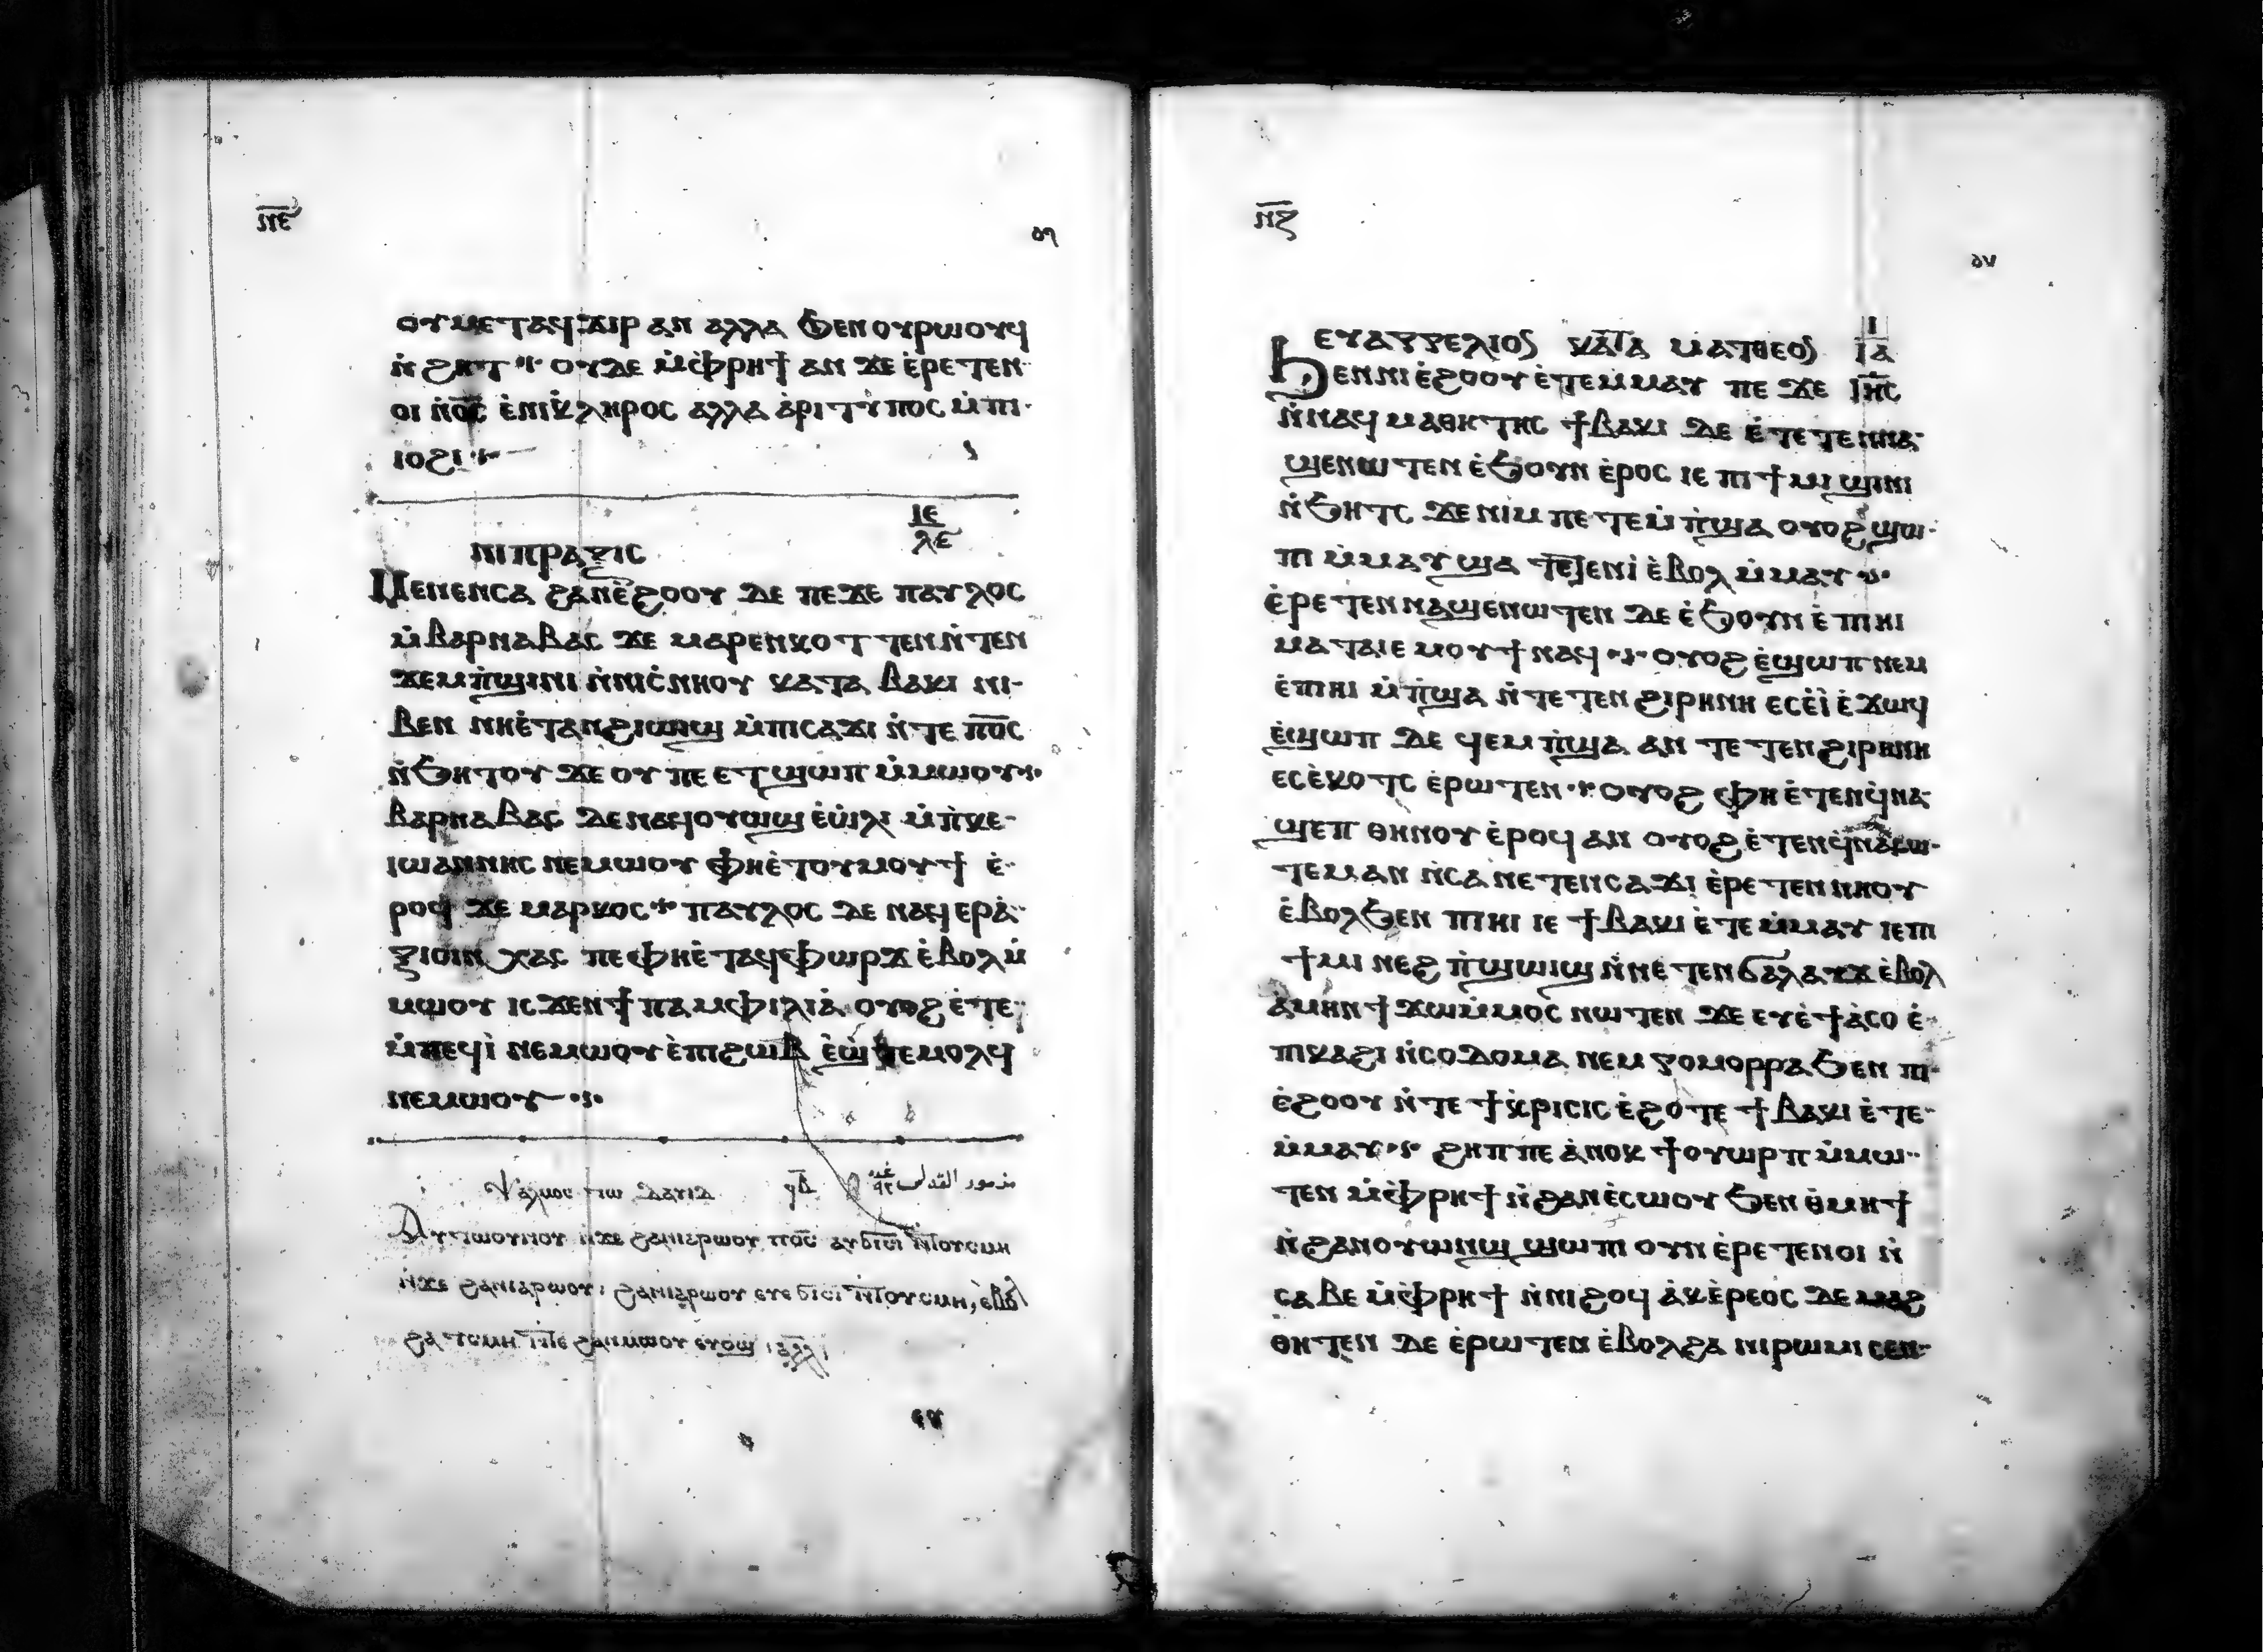 ⲛ̅ⲉ̅
ⲟⲩⲙⲉⲧⲁϥϫⲓⲣ ⲁⲛ ⲁⲗⲗⲁ ϧⲉⲛ ⲟⲩⲣⲱⲟⲩϥ
ⲛ̀ϩⲏⲧ ⲟⲩⲇⲉ ⲙ̀ⲫⲣⲏϯ ⲁⲛ ϫⲉ ⲉ̀ⲣⲉⲧⲉⲛ
ⲟⲓ ⲛ̀ⲟ̅ⲥ̅ ⲉ̀ⲛⲓⲕ̀ⲗⲏⲣⲟⲥ ⲁⲗⲗⲁ ⲁ̀ⲣⲓⲧⲩⲡⲟⲥ ⲙ̀ⲡⲓ
ⲓⲟϩⲓ
ⲓⲉ
ⲗⲉ
ⲛⲓⲡⲣⲁⲝⲓⲥ
Ⲙⲉⲛⲉⲛⲥⲁ ϩⲁⲛⲉ̀ϩⲟⲟⲩ ⲇⲉ ⲡⲉϫⲉ ⲡⲁⲩⲗⲟⲥ
ⲙ̀ⲃⲁⲣⲛⲁⲃⲁⲥ ϫⲉ ⲙⲁⲣⲉⲛⲕⲟⲧⲧⲉⲛ ⲛ̀ⲧⲉⲛ
ϫⲉⲙⲡ̀ϣⲓⲛⲓ ⲛ̀ⲛⲓⲥ̀ⲛⲏⲟⲩ ⲕⲁⲧⲁ ⲃⲁⲕⲓ ⲛⲓ
ⲃⲉⲛ ⲛⲏⲉ̀ⲧⲁⲛϩⲓⲱⲓϣ ⲙ̀ⲡⲓⲥⲁϫⲓ ⲛ̀ⲧⲉ ⲡ̅ⲟ̅ⲥ̅
ⲛ̀ϧⲏⲧⲟⲩ ϫⲉ ⲟⲩ ⲡⲉ ⲉⲧϣⲱⲡ ⲙ̀ⲙⲱⲟⲩ
ⲃⲁⲣⲛⲁⲃⲁⲥ ⲇⲉ ⲛⲁϥⲟⲩⲱϣ ⲉ̀ⲱ̀ⲗⲓ ⲙ̀ⲡ̀ⲕⲉ
ⲓⲱⲁⲛⲛⲏⲥ ⲛⲉⲙⲱⲟⲩ ⲫⲏⲉ̀ⲧⲟⲩⲙⲟⲩϯ ⲉ̀
ⲣⲟϥ ϫⲉ ⲙⲁⲣⲕⲟⲥ ⲡⲁⲩⲗⲟⲥ ⲇⲉ ⲛⲁϥⲉⲣⲁ̀
ⲝⲓⲟⲓⲛ ⲭⲁⲥ ⲡⲉ ⲫⲏⲉ̀ⲧⲁϥⲫⲱⲣϫ ⲉ̀ⲃⲟⲗ ⲙ̀
ⲙⲱⲟⲩ ⲓⲥϫⲉⲛ ϯⲡⲁⲙⲫⲓⲗⲓⲁ̀ ⲟⲩⲟϩ ⲉ̀ⲧⲉ
ⲙ̀ⲡⲉϥⲓ̀ ⲛⲉⲙⲱⲟⲩ ⲉ̀ⲡⲓϩⲱⲃ ⲉ̀ϣ̀ⲧⲉⲙⲟⲗϥ
ⲛⲉⲙⲱⲟⲩ
Ⲯⲁⲗⲙⲟⲥ ⲧⲱ ⲇⲁⲩⲓⲇ ϥ̅ⲇ̅ مزمور القداس
Ⲁⲩⲧⲱⲟⲩⲛⲟⲩ ⲛ̀ϫⲉ ϩⲁⲛⲓⲁⲣⲱⲟⲩ ⲡ̅ⲟ̅ⲥ̅ ⲁⲩϭⲓⲥⲓ ⲛ̀ⲧⲟⲩⲥⲙⲏ
ⲛ̀ϫⲉ ϩⲁⲛⲓⲁⲣⲱⲟⲩ ϩⲁⲛⲓⲁⲣⲱⲟⲩ ⲉⲩⲉϭⲓⲥⲓ ⲛ̀ⲧⲟⲩⲥⲙⲏ, ⲉ̀ⲃⲟⲗ
ϩⲁ ⲧⲥⲙⲏ ⲛ̀ⲧⲉ ϩⲁⲛⲙⲱⲟⲩ ⲉⲩⲟϣ ⲁⲗⲗ
ⲛ̅ⲋ̅
ⲉⲩⲁⲅⲅⲉⲗⲓⲟⲥ ⲕⲁⲧⲁ ⲙⲁⲧⲑⲉⲟⲥ ⲓ ⲓⲁ
Ϧⲉⲛ ⲛⲓⲉ̀ϩⲟⲟⲩ ⲉ̀ⲧⲉⲙⲙⲁⲩ ⲡⲉϫⲉ ⲓⲏ̅ⲥ̅
ⲛ̀ⲛⲁϥⲙⲁⲑⲏⲧⲏⲥ ϯⲃⲁⲕⲓ ⲇⲉ ⲉ̀ⲧⲉⲧⲉⲛⲛⲁ
ϣⲉⲛⲱⲧⲉⲛ ⲉ̀ϧⲟⲩⲛ ⲉ̀ⲣⲟⲥ ⲓⲉ ⲡⲓϯⲙⲓ ϣⲓⲛⲓ
ⲛ̀ϧⲏⲧⲥ ϫⲉ ⲛⲓⲙ ⲡⲉⲧⲉⲙ̀ⲡ̀ϣⲁ ⲟⲩⲟϩ ϣⲱ
ⲡⲓ ⲙ̀ⲙⲁⲩ ϣⲁ ⲧⲉⲧⲉⲛⲓ̀ ⲉ̀ⲃⲟⲗ ⲙ̀ⲙⲁⲩ
ⲉ̀ⲣⲉⲧⲉⲛⲛⲁϣⲉⲛⲱⲧⲉⲛ ⲇⲉ ⲉ̀ϧⲟⲩⲛ ⲉ̀ⲡⲓⲏⲓ
ⲙⲁⲧⲁⲓⲉ ⲙⲟⲩϯ ⲛⲁϥ ⲟⲩⲟϩ ⲉ̀ϣⲱⲡ ⲙⲉⲛ
ⲉ̀ⲡⲓⲏⲓ ⲙ̀ⲡ̀ϣⲁ ⲛ̀ⲧⲉⲧⲉⲛϩⲓⲣⲏⲛⲏ ⲉⲥⲉ̀ⲓ̀ ⲉ̀ϫⲱϥ
ⲉ̀ϣⲱⲡ ⲇⲉ ϥⲉⲙⲡ̀ϣⲁ ⲁⲛ ⲧⲉⲧⲉⲛϩⲓⲣⲏⲛⲏ
ⲉⲥⲉ̀ⲕⲟⲧⲥ ⲉ̀ⲣⲱⲧⲉⲛ ⲟⲩⲟϩ ⲫⲏ ⲉ̀ⲧⲉⲛϥ̀ⲛⲁ
ϣⲉⲡ ⲑⲏⲛⲟⲩ ⲉ̀ⲣⲟϥ ⲁⲛ ⲟⲩⲟϩ ⲉ̀ⲧⲉⲛϥ̀ⲛⲁⲥⲱ
ⲧⲉⲙ ⲁⲛ ⲛ̀ⲥⲁ ⲛⲉⲧⲉⲛⲥⲁϫⲓ ⲉ̀ⲣⲉⲧⲉⲛⲛⲏⲟⲩ
ⲉ̀ⲃⲟⲗϧⲉⲛ ⲡⲓⲏⲓ ⲓⲉ ϯⲃⲁⲕⲓ ⲉ̀ⲧⲉⲙ̀ⲙⲁⲩ ⲓⲉ ⲡⲓ
ϯⲙⲓ ⲛⲉϩ ⲡ̀ϣⲱⲓϣ ⲛ̀ⲛⲉⲧⲉⲛϭⲁⲗⲁⲩϫ ⲉ̀ⲃⲟⲗ
ⲁ̀ⲙⲏⲛ ϯϫⲱⲙ̀ⲙⲟⲥ ⲛⲱⲧⲉⲛ ϫⲉ ⲉⲩⲉ̀ϯⲁ̀ⲥⲟ ⲉ̀
ⲡⲕⲁϩⲓ ⲛ̀ⲥⲟⲇⲟⲙⲁ ⲛⲉⲙ ⲅⲟⲙⲟⲣⲣⲁ ϧⲉⲛ ⲡⲓ
ⲉ̀ϩⲟⲟⲩ ⲛ̀ⲧⲉ ϯⲕ̀ⲣⲓⲥⲓⲥ ⲉ̀ϩⲟⲧⲉ ϯⲃⲁⲕⲓ ⲉ̀ⲧⲉ
ⲙ̀ⲙⲁⲩ ϩⲏⲡⲡⲉ ⲁ̀ⲛⲟⲕ ϯⲟⲩⲱⲣⲡ ⲙ̀ⲙⲱ
ⲧⲉⲛ ⲙ̀ⲫⲣⲏϯ ⲛ̀ϩⲁⲛⲉ̀ⲥⲱⲟⲩ ϧⲉⲛ ⲑ̀ⲙⲏϯ
ⲛ̀ϩⲁⲛⲟⲩⲱⲛϣ ϣⲱⲡⲓ ⲟⲩⲛ ⲉ̀ⲣⲉⲧⲉⲛⲟⲓ ⲛ̀
ⲥⲁⲃⲉ ⲙ̀ⲫⲣⲏϯ ⲛ̀ⲛⲓϩⲟϥ ⲁ̀ⲕⲉ̀ⲣⲉⲟⲥ ⲇⲉ ⲙⲁϩ
ⲑⲏⲧⲉⲛ ⲇⲉ ⲉ̀ⲣⲱⲧⲉⲛ ⲉ̀ⲃⲟⲗϩⲁ ⲛⲓⲣⲱⲙⲓ ⲥⲉⲛ